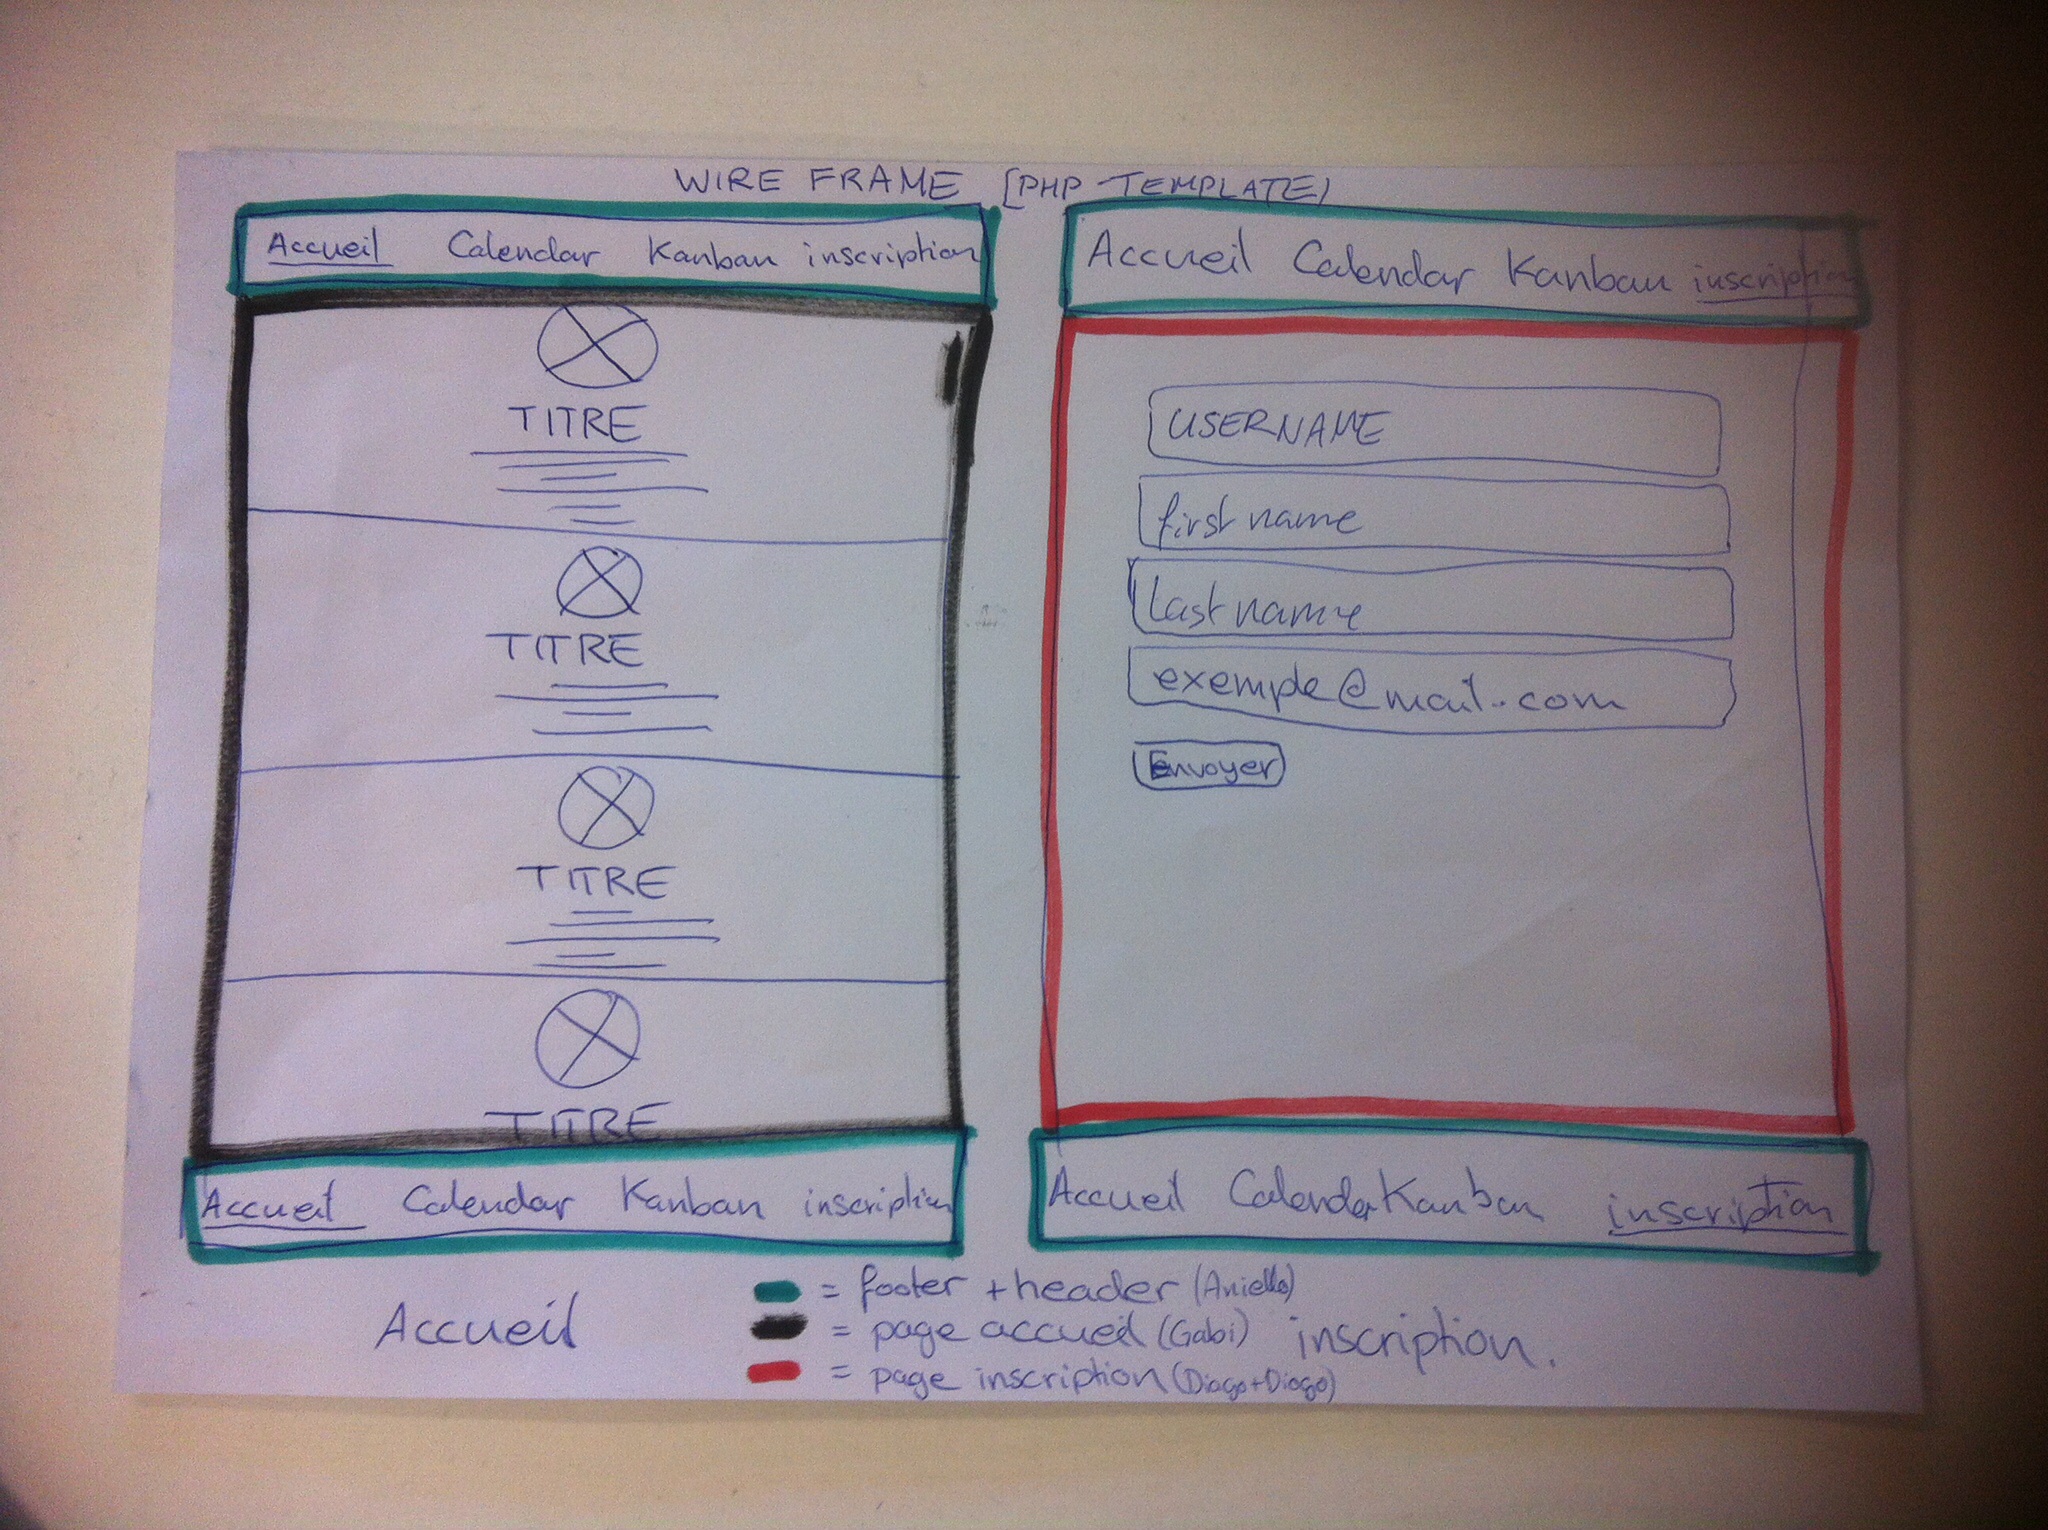 WIRE FRAME (PHP TEMPLATE)
Accueil Calendar Kanban inscription
TITRE
TITRE
TITRE
TITRE
Accueil Calendar Kanban inscription
Accueil
Accueil Calendar Kanban inscription
USERNAME
first name
last name
exemple@mail.com
Envoyer
Accueil Calendar Kanban inscription
inscription.
= footer + header (Aniello)
= page accueil (Gabi)
= page inscription (Diogo+Diogo)